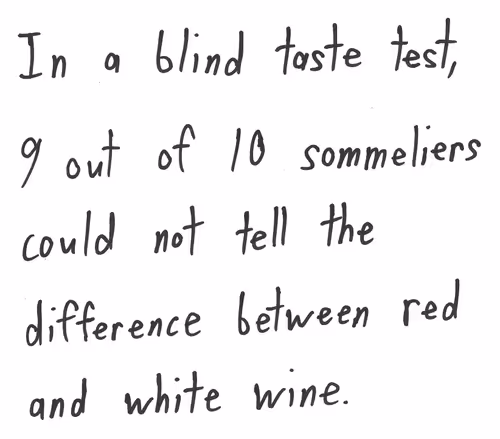 In a blind taste test,
9 out of 10 sommeliers
could not tell the
difference between red
and white wine.